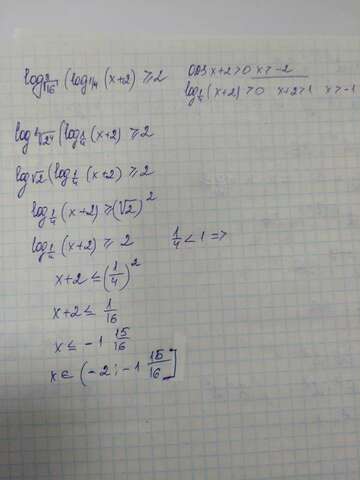 log ⁸√16 (log 1/4 (x+2) ≥ 2 ОДЗ x+2>0 x>-2
log 1/4 (x+2) >0 x+2>1 x>-1
log ⁸√2⁴ (log 1/4 (x+2) ≥ 2
log √2 (log 1/4 (x+2) ≥ 2
log 1/4 (x+2) ≥ (√2)²
log 1/4 (x+2) ≥ 2 1/4 < 1 =>
x+2 ≤ (1/4)²
x+2 ≤ 1/16
x ≤ -1 15/16
x ∈ (-2; -1 15/16]